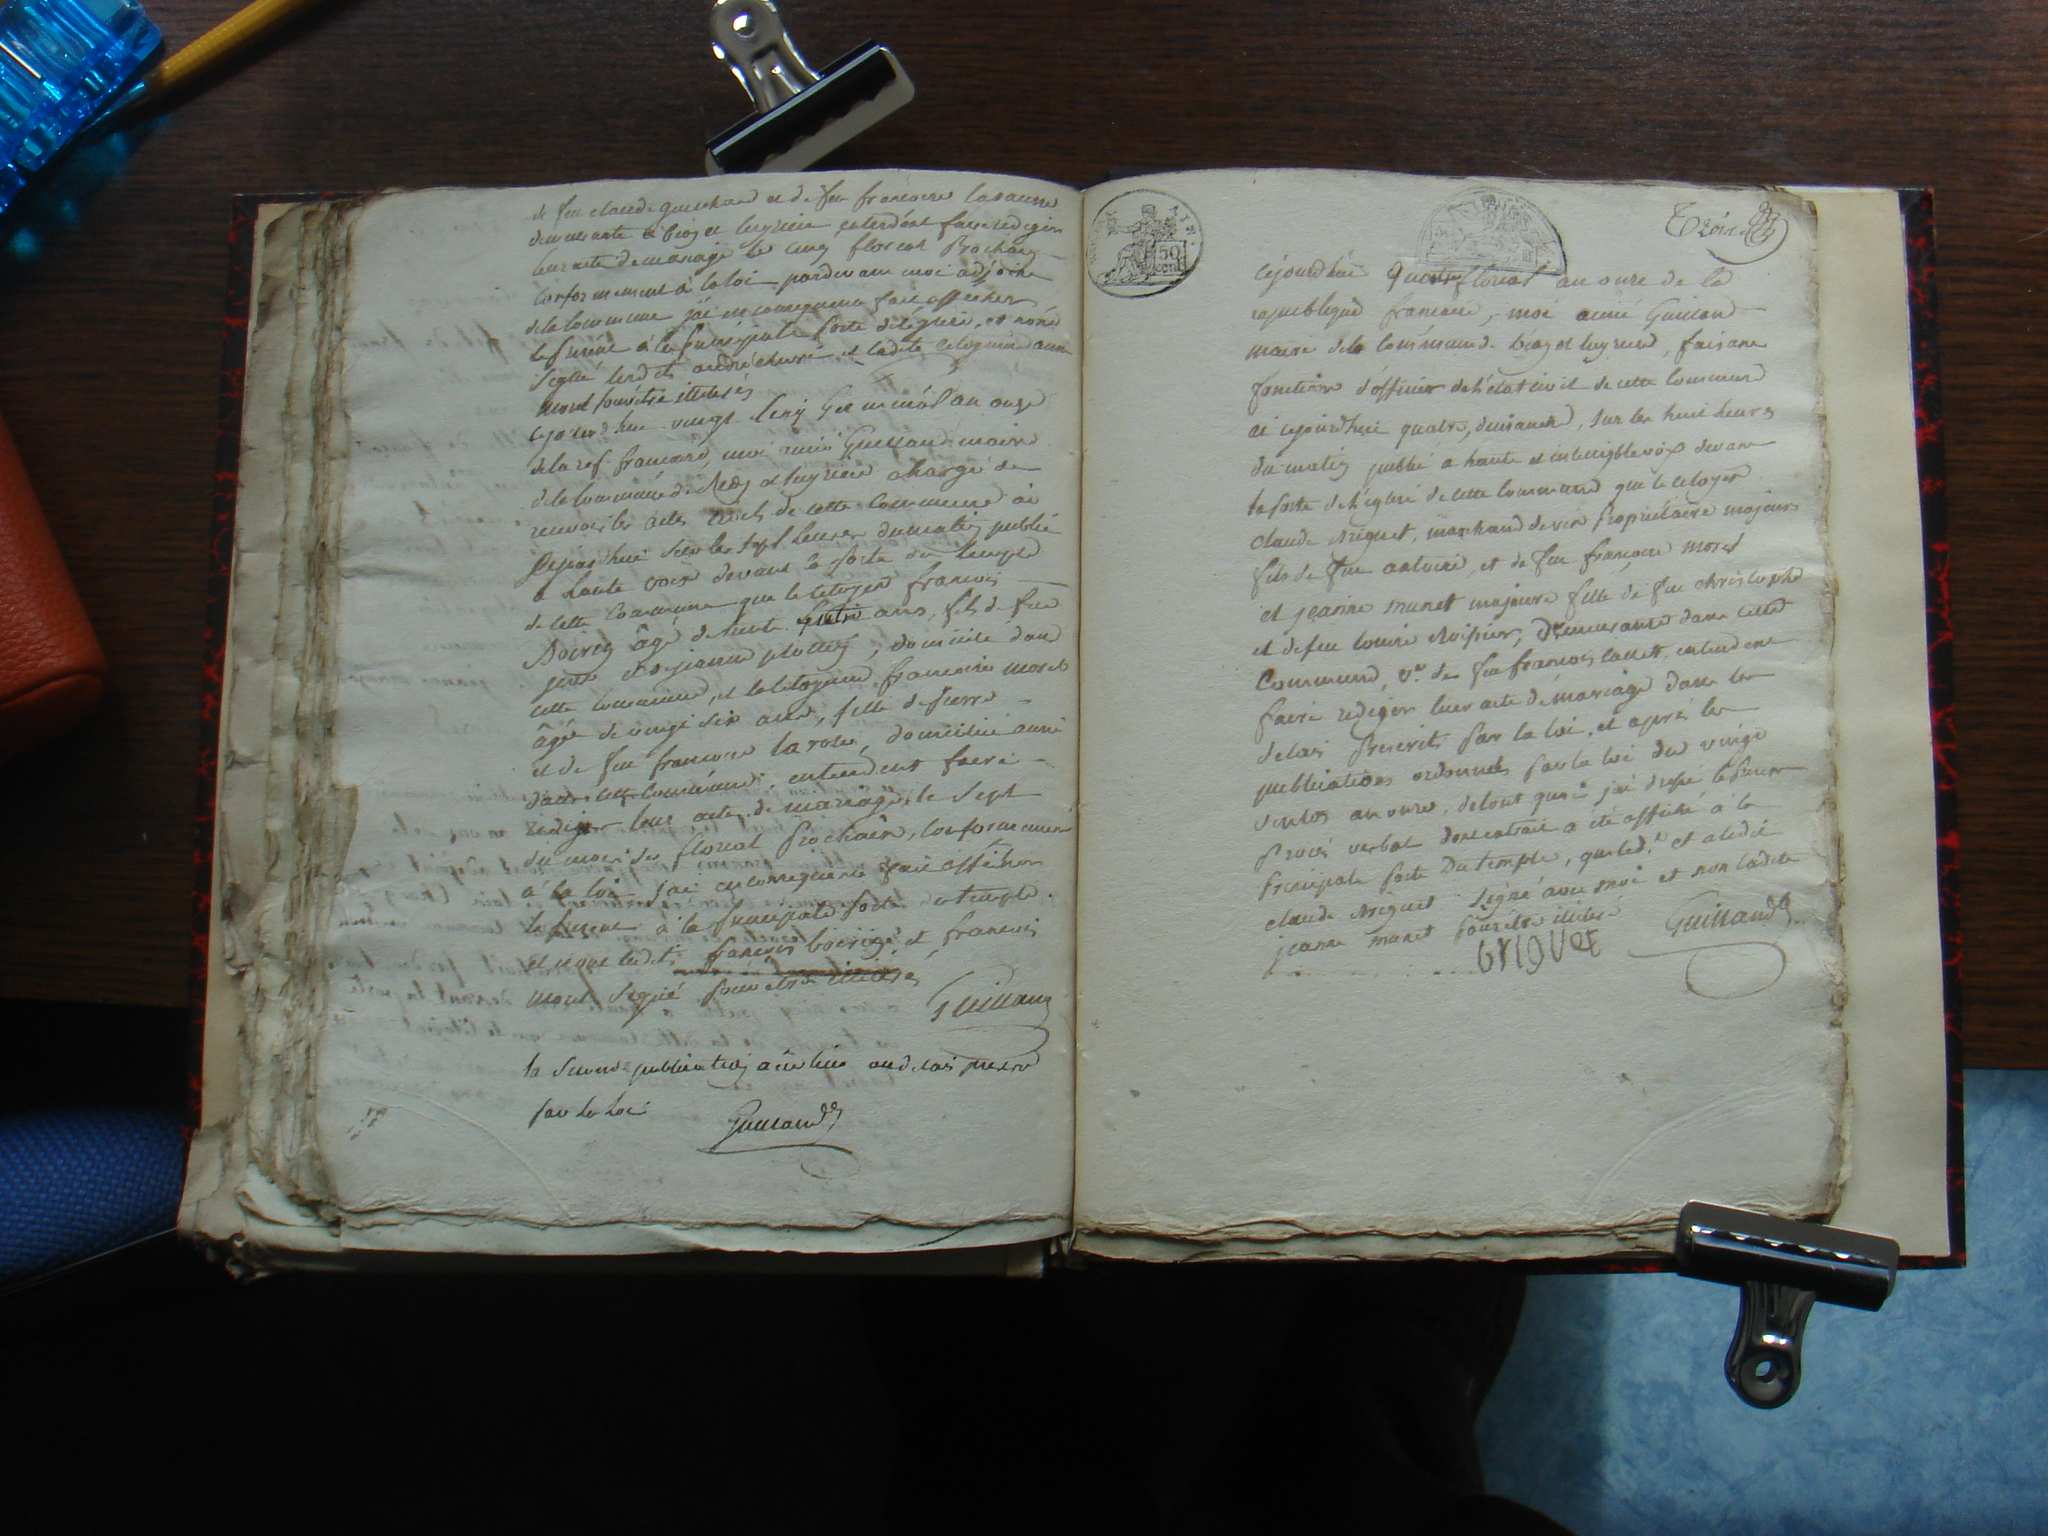 de feu claude guichard et de feu francoise lasausse
demeurante a bioz et luyrieu, entendent faire rediger
leur acte de mariage le cinq floreal prochain
conformement à la loi pardevant moi adjoint
de la commune jai en consequence fait afficher
le présent à la principale porte de léglise, et nont
signé lesdits andré et ladite citoyenne
pour etre illiterés
cejourdhui vingt germinal an onze
de la rep. francaise, moi aimé Guilland maire
de la commune de et luyrieu chargé de
recevoir les actes civils de cette commune ai
cejourdhui sur les sept heures du matin publié
a haute voix devant la porte du temple
de cette commune que le citoyen francois
âgé de trente ans, fils de feu
et de jeanne, domicilié dans
cette commune, et la citoyenne francoise morel
âgée de vingt six ans, fille de pierre
et de feu francoise la rose, domiciliée aussi
dans cette commune, entendent faire
rediger leur acte de mariage le sept
du mois de floreal prochain, conformement
à la loi jai en consequence fait afficher
le present à la principale porte du temple.
et ce que ledit francois et francoise
n'ont signé pour etre illiterés
Guilland
la seconde publication a eu lieu au delai prescrit
par la loi
Guilland
50
cent
Trois
cejourdhui quatre floreal an onze de la
republique francaise, moi aimé Guilland
maire de la commune de bioz et luyrieu, faisant
fonction d'officier de l'état civil de cette commune
ai cejourdhui quatre, dimanche, sur les huit heures
du matin publié a haute et intelligible voix devant
la porte de l'église de cette commune que le citoyen
claude Briguet, marchand de vin propriétaire majeur
fils de feu antoine, et de feu francoise morel
et jeanne munet majeure fille de feu christophe
et de feu louise, demeurante dans cette
commune, v.e de feu francois, entendent
faire rediger leur acte de mariage dans les
delais prescrits par la loi, et après les
publications ordonnées par la loi du vingt
ventos an onze, de tout quoi j'ai dressé le present
procès verbal dont extrait a été affiché à la
principale porte du temple, que led.t
claude Briguet signé avec moi et non ladite
jeanne munet pour etre illiteré
briguet Guilland